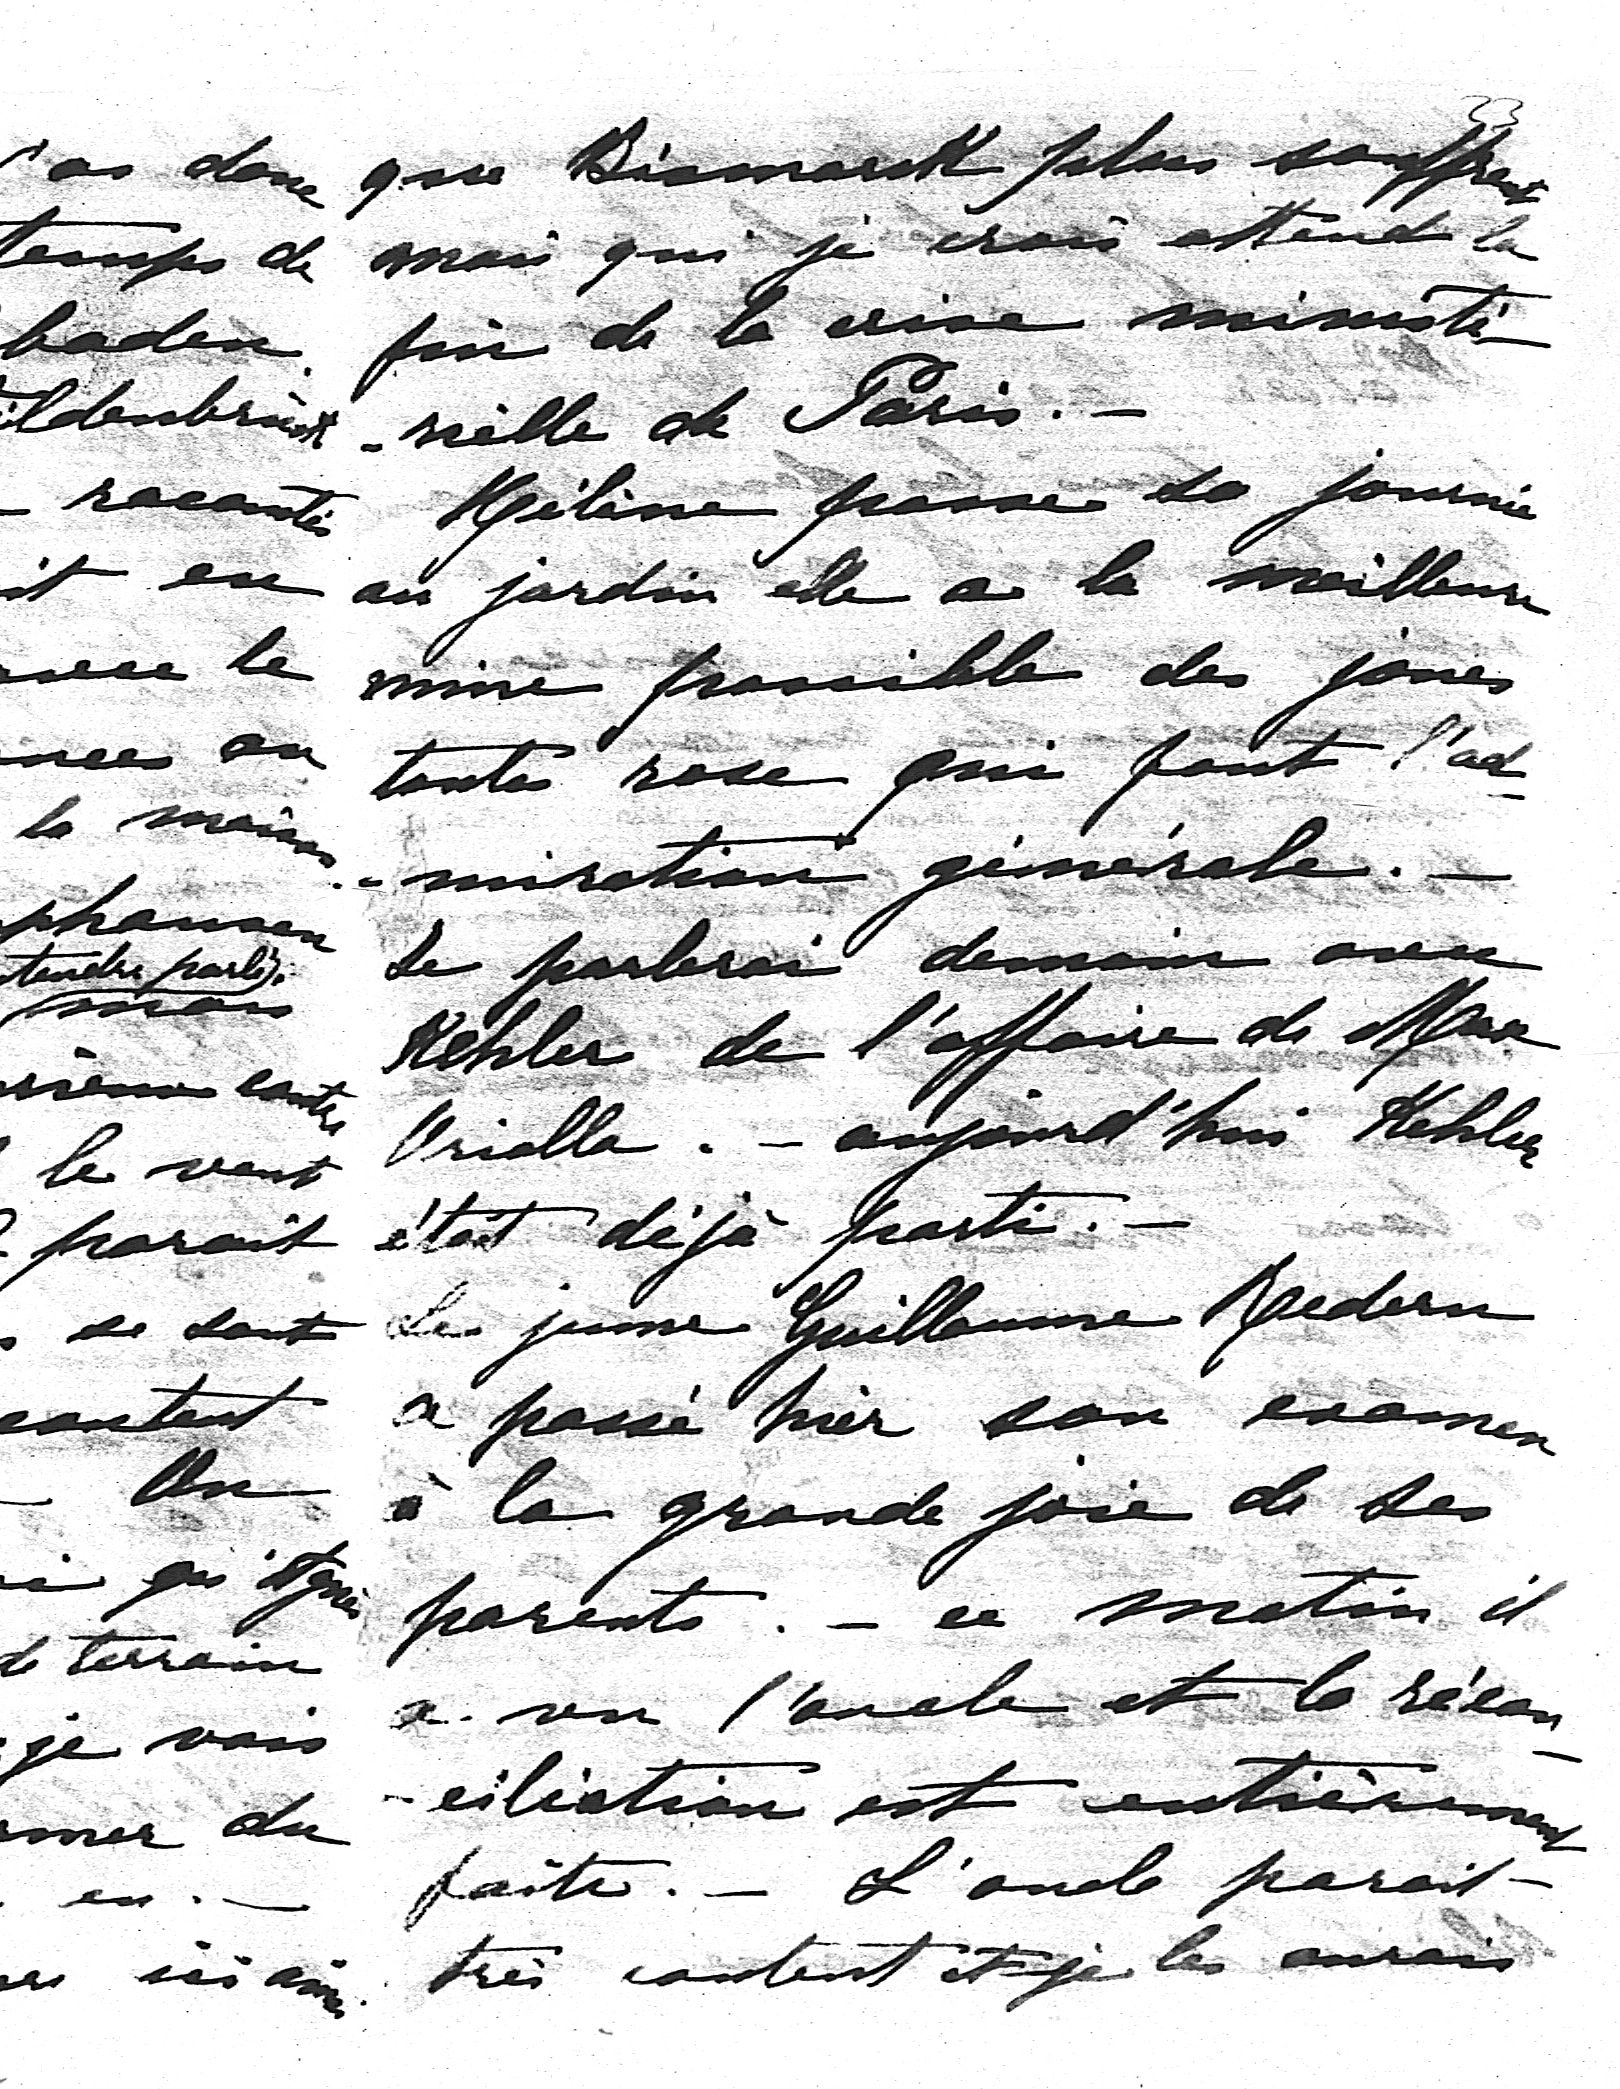 33
que Bismarck plus souffrant
mais qui je crois attend la
fin de la crise ministé-
-rielle de Paris. -
Hélène passe sa journée
au jardin elle a la meilleure
mine possible des joues
toutes rose qui font l'ad-
-miration générale. -
Je parlerai demain avec
Kehler de l'affaire de Max
Oriolla. - aujourd'hui Kehler
était déjà parti. -
Le jeune Guillaume Redern
a passé hier son examen
à la grande joie de ses
parents. - ce matin il
a vu l'oncle et la récon-
-ciliation est entièrement
faite. - L'oncle parait
très content et je les aurais
as donc
temps de
baden.
racontés
it eu
avec le
au
la maison.
phausen
tendre parlé).
mais
contre
le vent
parait
se sont
content
- On
qu'Agnès
de terrain
je vais
du
en. -
ici